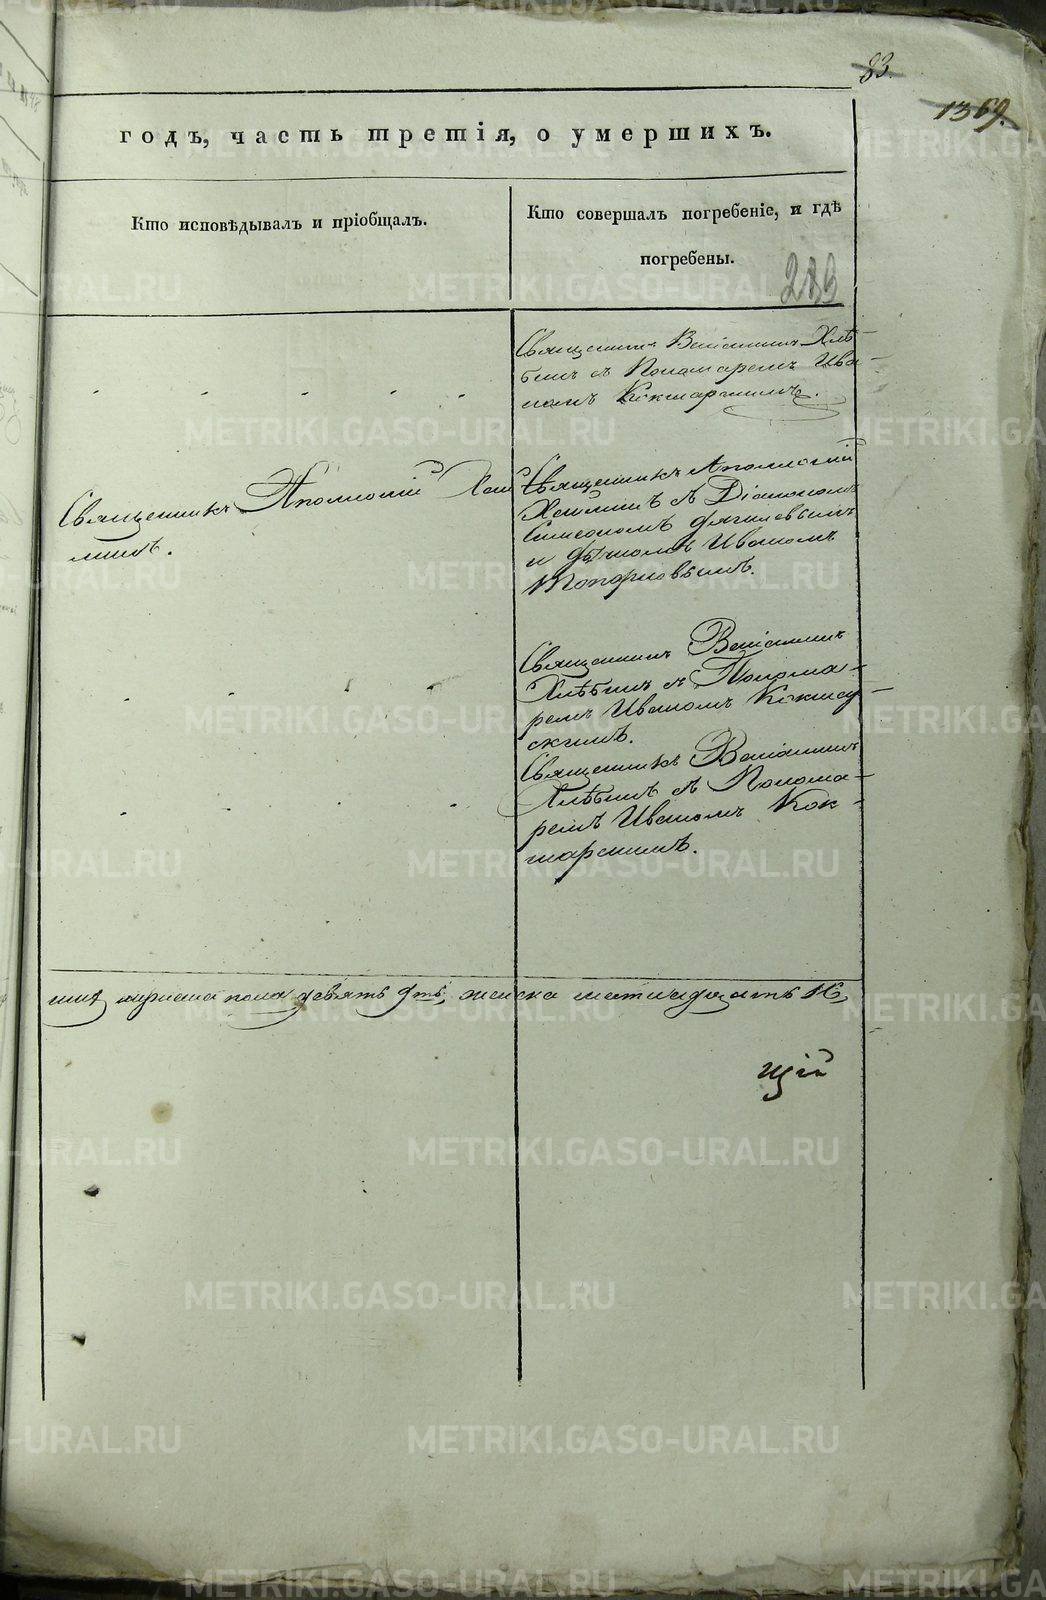 83.
1369.
годъ, часть третія, о умершихъ.
Кто исповѣдывалъ и пріобщалъ.
Кто совершалъ погребеніе, и гдѣ
погребены.
289
Священникъ Веніаминъ Хлѣ-
бинъ съ Пономаремъ Ива-
номъ Кокшарскимъ.
Священникъ Аполлоній
Священникъ Аполлоній
съ Діакономъ
Симеономъ Дягилевымъ
и Дьячкомъ Иваномъ
Топорковымъ.
Священникъ Веніаминъ
Хлѣбинъ съ Понома-
ремъ Иваномъ
Священникъ Веніаминъ
Хлѣбинъ съ Понома-
ремъ Иваномъ Кок-
шарскимъ.
пола девять женска шестнадцать
щій
METRIKI.GASO-URAL.RU